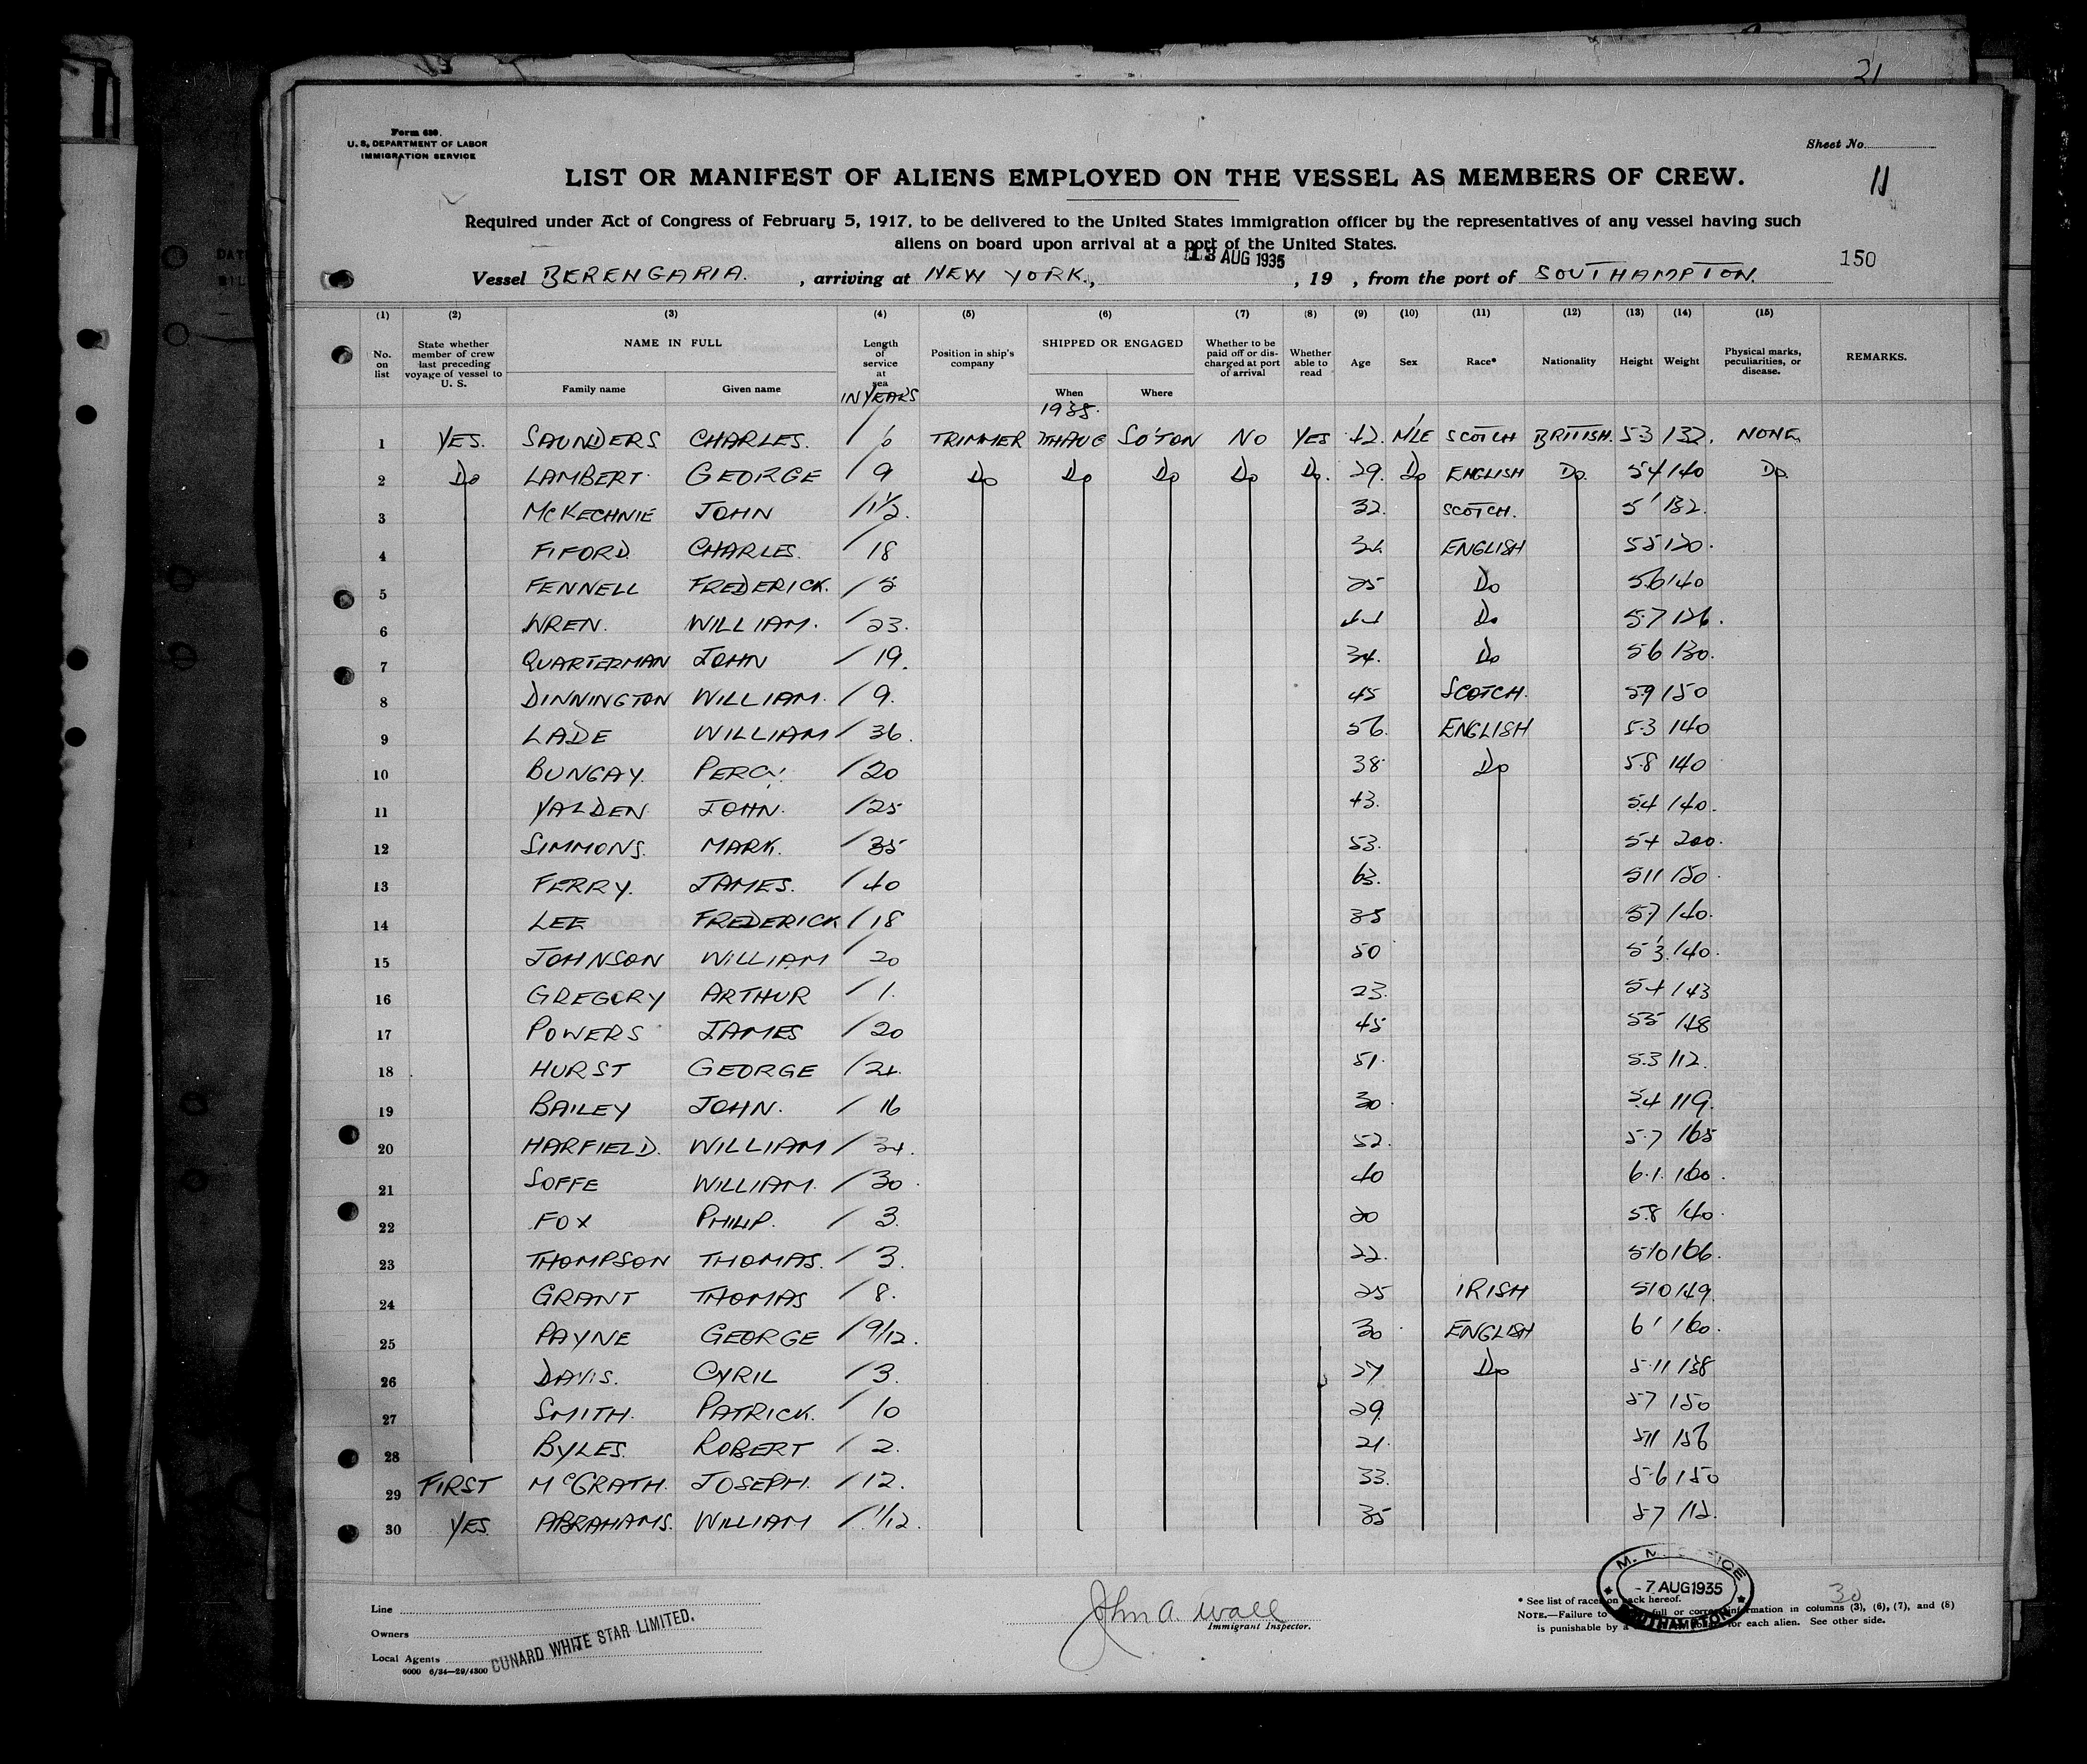 31
Form 680.
U. S. DEPARTMENT OF LABOR
IMMIGRATION SERVICE
Sheet No.
11
LIST OR MANIFEST OF ALIENS EMPLOYED ON THE VESSEL AS MEMBERS OF CREW.
Required under Act of Congress of February 5, 1917, to be delivered to the United States immigration officer by the representatives of any vessel having such
aliens on board upon arrival at a port of the United States.
13 AUG 1935
150
Vessel BERENGARIA. , arriving at NEW YORK. , , 19 , from the port of SOUTHAMPTON.
(1) (2) (3) (4) (5) (6) (7) (8) (9) (10) (11) (12) (13) (14) (15)
No. on list State whether member of crew last preceding voyage of vessel to U. S. NAME IN FULL Family name Given name Length of service at sea IN YEARS Position in ship's company SHIPPED OR ENGAGED When Where Whether to be paid off or discharged at port of arrival Whether able to read Age Sex Race* Nationality Height Weight Physical marks, peculiarities, or disease. REMARKS.
1935.
1 YES. SAUNDERS CHARLES. / 6 TRIMMER 7TH AUG SO'TON NO YES 42. M'LE SCOTCH BRITISH. 5.3 132. NONE
2 Do LAMBERT GEORGE / 9 Do Do Do Do Do. 29. Do ENGLISH Do. 5.4 140 Do.
3 McKECHNIE JOHN / 1½. 32. SCOTCH. 5' 132.
4 FIFORD CHARLES. / 18 34. ENGLISH 5.5 120.
5 FENNELL FREDERICK. / 5 25 Do 5.6 140
6 WREN. WILLIAM. / 23. 44 Do 5.7 126.
7 QUARTERMAN JOHN / 19. 34. Do 5.6 130.
8 DINNINGTON WILLIAM. / 9. 45 SCOTCH. 5.9 150
9 LADE WILLIAM / 36. 56. ENGLISH 5.3 140
10 BUNGAY. PERCY. / 20 38 Do 5.8 140
11 YALDEN JOHN. / 25 43. 5.4 140.
12 SIMMONS. MARK. / 35 53. 5.4 200.
13 FERRY. JAMES. / 40 63. 5.11 150.
14 LEE FREDERICK / 18 35 5.7 140.
15 JOHNSON WILLIAM / 20 50 5'3. 140.
16 GREGORY ARTHUR / 1. 23. 5.4 143
17 POWERS JAMES / 20 45 5.5 148
18 HURST GEORGE / 24. 51. 5.3 112.
19 BAILEY JOHN. / 16 30. 5.4 119.
20 HARFIELD. WILLIAM / 34. 52. 5.7 165
21 SOFFE WILLIAM. / 30. 40 6.1. 160.
22 FOX PHILIP. / 3. 20 5.8 140.
23 THOMPSON THOMAS. / 3. 22. 5.10 166.
24 GRANT THOMAS / 8. 25 IRISH 5.10 149.
25 PAYNE GEORGE / 9/12. 30. ENGLISH 6' 160.
26 DAVIS. CYRIL / 3. 27 Do 5.11 138
27 SMITH. PATRICK. / 10 29. 5.7 150
28 BYLES. ROBERT / 2. 21. 5.11 156
29 FIRST McGRATH. JOSEPH. / 12. 33. 5.6 150
30 YES ABRAHAMS. WILLIAM / 1/12. 35 5.7 112.
Line
Owners
Local Agents
CUNARD WHITE STAR LIMITED.
6000 6/34—29/4300
John A. Wall
Immigrant Inspector.
-7 AUG 1935
SOUTHAMPTON
30
* See list of races on back hereof.
NOTE.—Failure to full or correct information in columns (3), (6), (7), and (8)
is punishable by a for each alien. See other side.